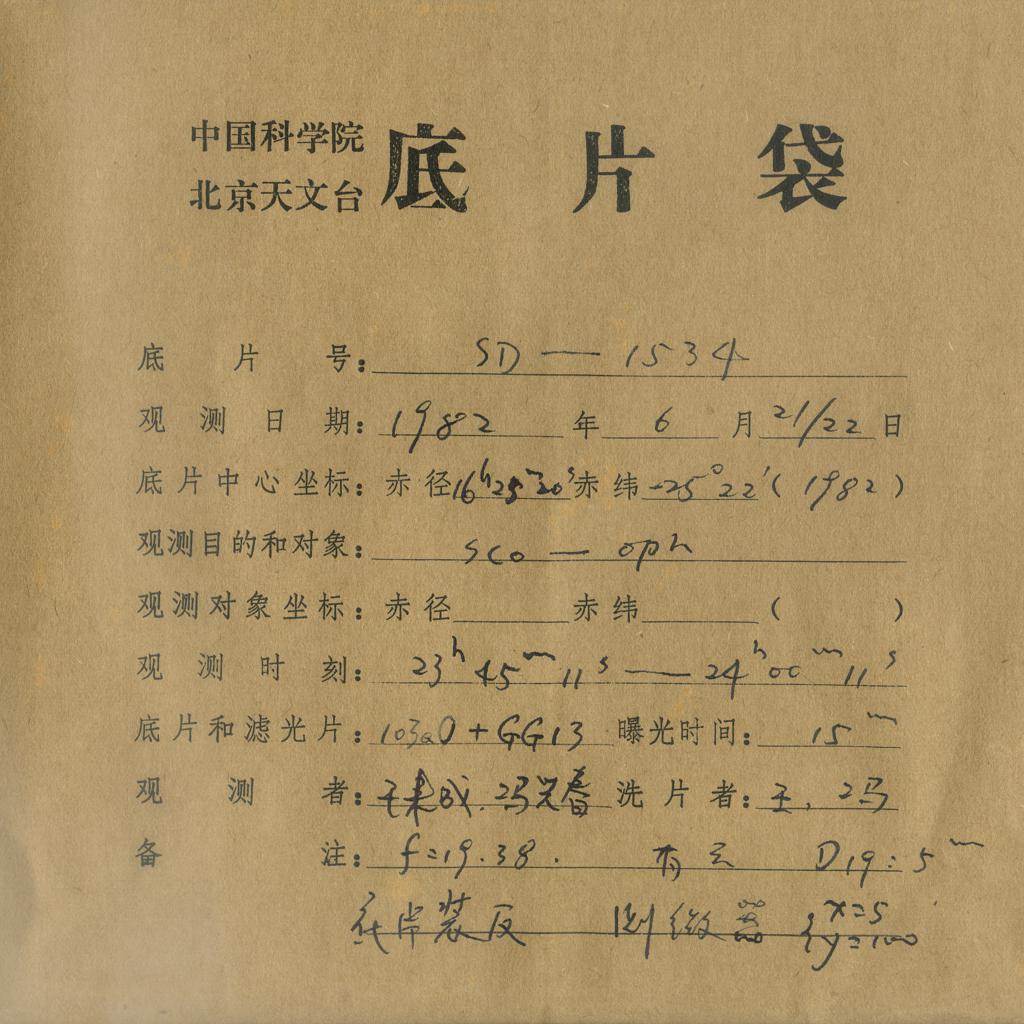 中国科学院
北京天文台
底片袋
底片号: SD — 1534
观测日期: 1982 年 6 月 21/22 日
底片中心坐标: 赤径 16h25m20s 赤纬 -25°22′ (1982)
观测目的和对象: sco — oph
观测对象坐标: 赤径 赤纬 ( )
观测时刻: 23h 45m 11s — 24h 00m 11s
底片和滤光片: 103aO + GG13 曝光时间: 15m
观测者: 王来成. 冯兴春 洗片者: 王, 冯
备注: f=19.38. 有云 D19: 5m
装反 测微器 { x=5
y=100